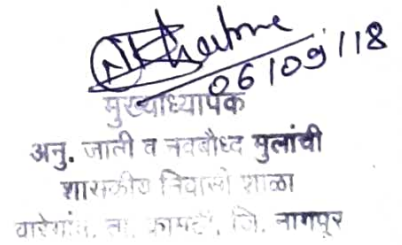 06/09/18
मुख्याध्यापक
अनु. जाती व नवबौध्द मुलांची
शासकीय निवासी शाळा
वारेगांव, ता. कामठी, जि. नागपूर